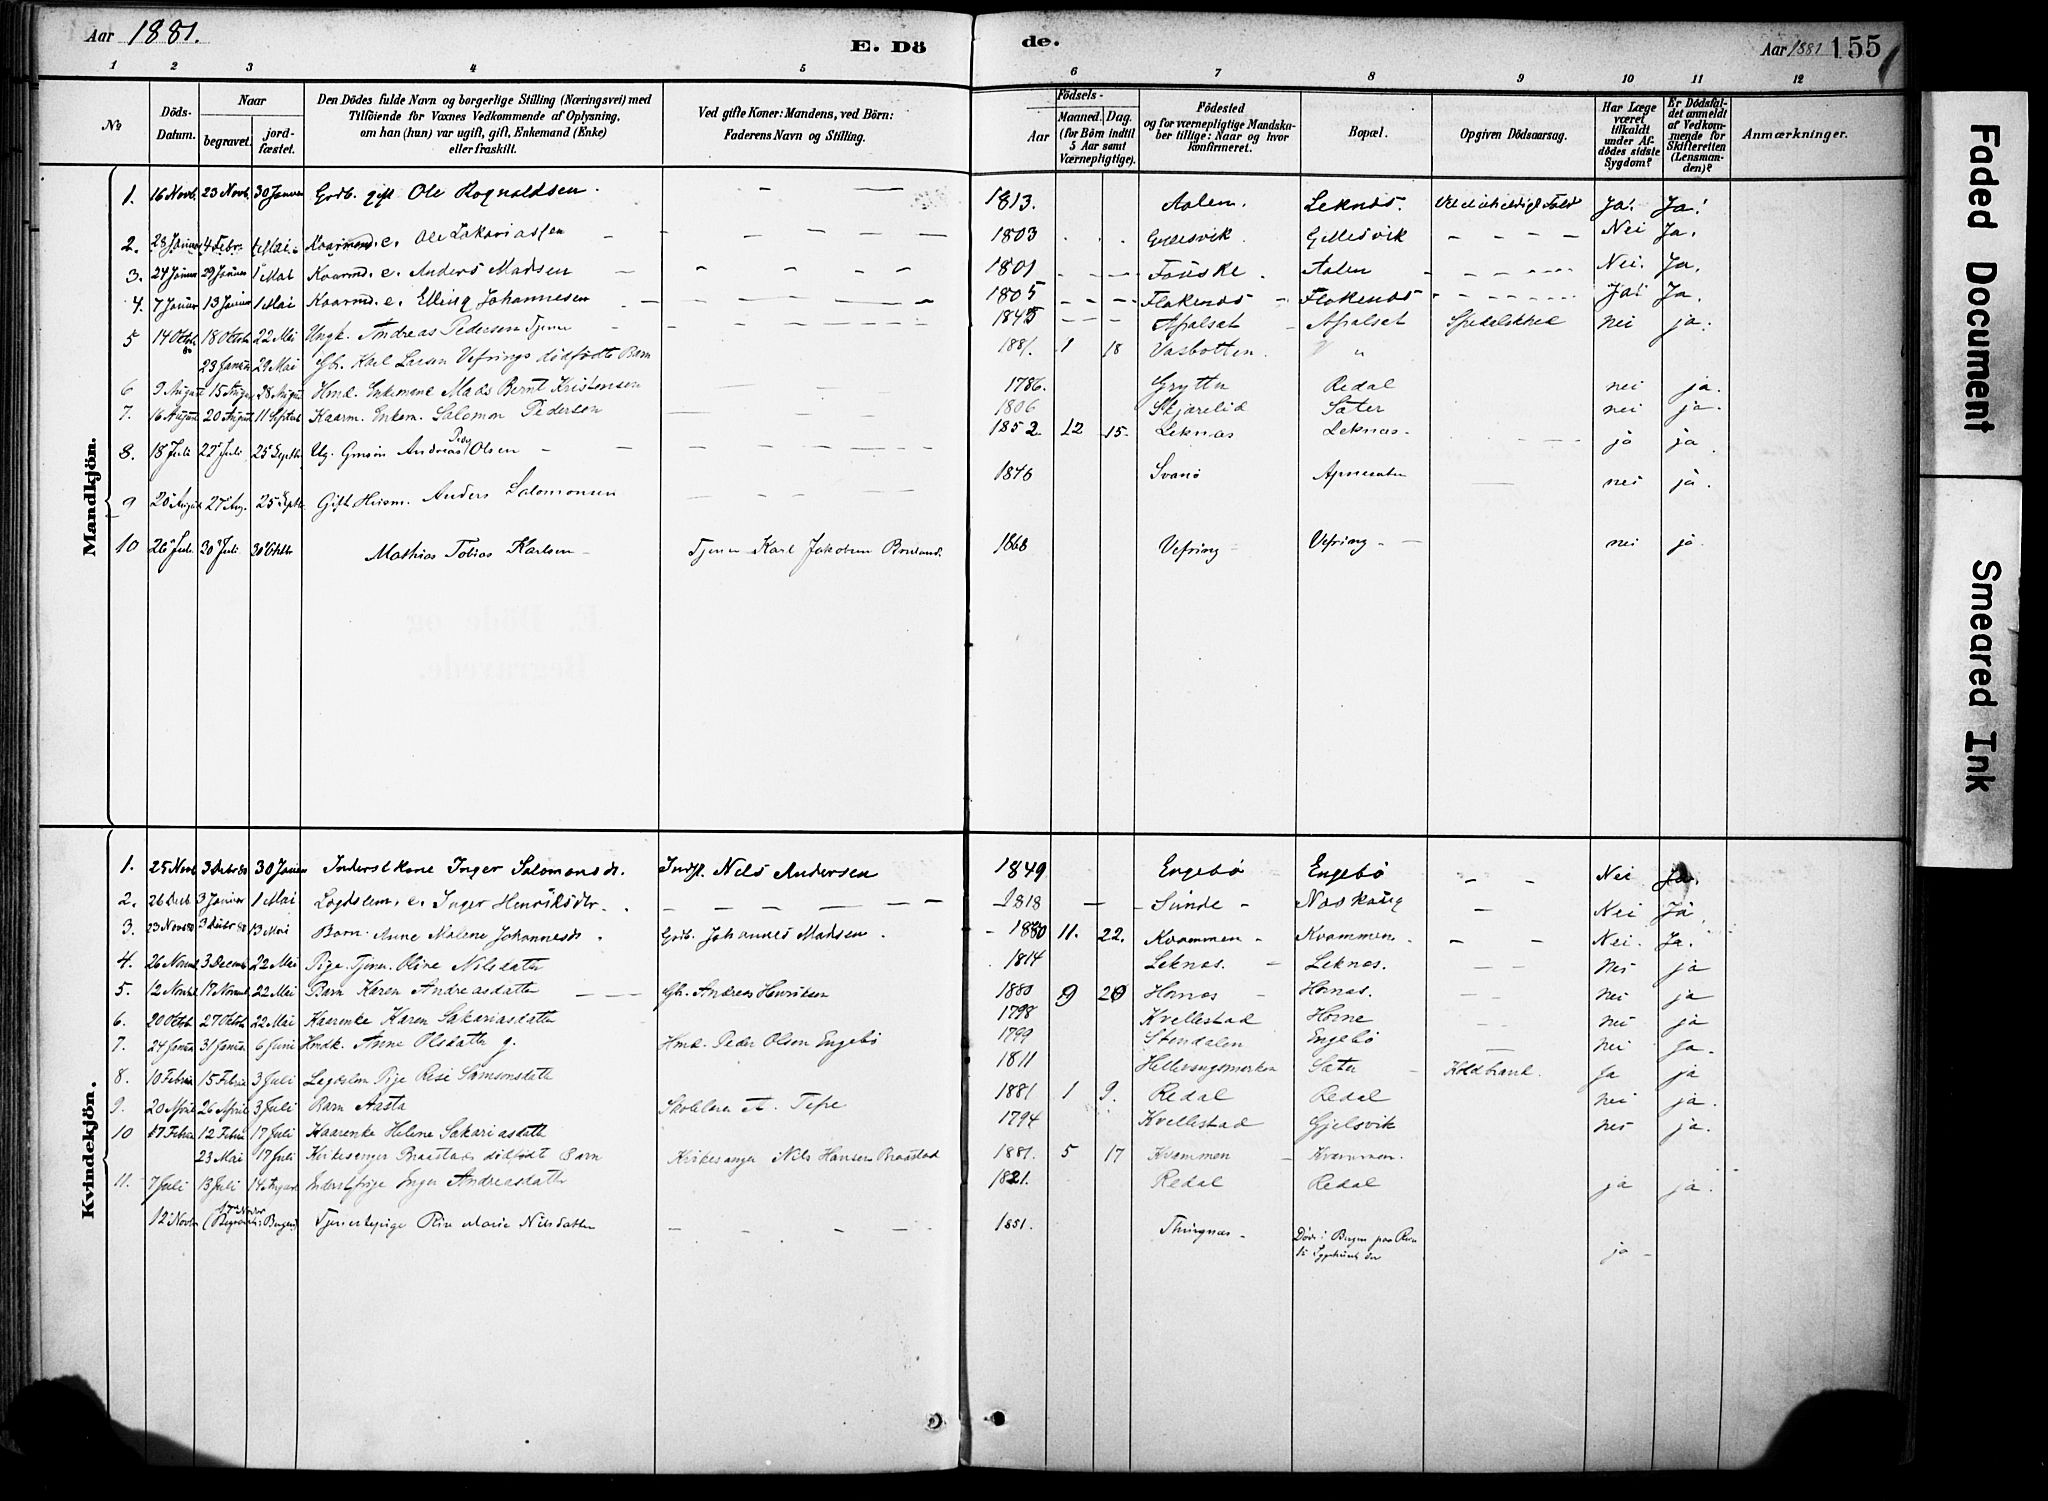 Aar 1881.
E. Dö
de.
Aar 1881
155
1 2 3 4 5 6 7 8 9 10 11 12
No
Döds-Datum.
Naar
begravet. jord-fæstet.
Den Dödes fulde Navn og borgerlige Stilling (Næringsvei) med
Tilföiende for Voxnes Vedkommende af Oplysning,
om han (hun) var ugift, gift, Enkemand (Enke)
eller fraskilt.
Ved gifte Koner: Mandens, ved Börn:
Faderens Navn og Stilling.
Födsels-
Aar
Maaned. Dag.
(for Börn indtil
5 Aar samt
Værnepligtige).
Födested
og for værnepligtige Mandska-
ber tillige: Naar og hvor
konfirmeret.
Bopæl.
Opgiven Dödsaarsag.
Har Læge
været
tilkaldt
under Af-
dödes sidste
Sygdom?
Er Dödsfal-
det anmeldt
af Vedkom-
mende for
Skifteretten
(Lensman-
den)?
Anmærkninger.
Mandkjön.
1. 16 Novb. 23 Novb. 30 Januar Gift Ole Rognaldsen 1813. Aalen. Leknæs. Ja! Ja!
2. 28 Januar 4 Febr. 1 Mai Kaarmand. e. Ole Zakariassen 1803 Gjelesvik Nei Ja.
3. 24 Januar 29 Januar 1 Mai Kaarmd. e. Anders Madsen 1801 Fauske Aalen Nei. Ja.
4. 7 Januar 13 Januar 1 Mai Kaarmd. e. Elling Johannesen 1805 Flokenæs Flokenæs Ja! Ja.
5 14 Oktbr 80 18 Oktbr 22 Mai Ungk. Andreas Pedersen Tjener 1845 Apalset Apalset Spedalskhed nei ja.
23 Januar 29 Mai Gbr. Karl Larsen Vefrings dödfödte Barn 1881. 1 18 Vasbotten "
6 9 August 15 August 28 August Hmd. Enkemand Mads Bernt Kristensen 1786. Grytten Redal nei ja.
7. 16 August 20 August 11 Septbr Kaarm. Enkem. Salomon Pedersen 1806 Skjærelid Sæter nei ja.
8. 18 Juli 22 Juli 25 Septbr Ug. Andreas Olsen 1852 12 15. Leknæs Leknæs ja ja
9 20 August 27 Aug. 25 Septbr Gift Husm. Anders Salomonsen 1846 Svanö nei ja.
10 26 Juli 30 Juli 30 Oktbr Mathias Tobias Karlsen Tjener Karl Jakobsen 1868 Vefring Vefring nei ja.
Kvindekjön.
1. 25 Novb 3 Debr 80 30 Januar Inderstkone Inger Salomonsdr. Indst. Nils Andersen 1849 Engebö Engebö Nei Ja.
2. 26 Decb 3 Januar 1 Mai Lægdslem. e. Inger Henriksdtr. 1818 Sunde Naskaug Nei Ja
3. 23 Novb 80 3 Decbr 80 13 Mai Barn Anne Malene Johannesdr. Gbr. Johannes Madsen 1880 11. 22. Kvammen Kvammen Nei. Ja.
4. 26 Novmb 3 Decmb 22 Mai Pige Tjener Oline Nilsdatter 1814 Leknæs. Leknæs. nei ja
5. 12 Novmb 17 Novmb 22 Mai Barn Karen Andreasdatter Gb. Andreas Henriksen 1880 9 20 Hornæs Hornæs. nei ja
6. 20 Oktbr 27 Oktbr 22 Mai Kaarenke Karen Sakariasdatter 1798 Kvellestad Horne nei ja
7. 24 Januar 31 Januar 6 Juni Hmdk. Anne Olsdatter g. Hmd. Peder Olsen Engebö 1799 Stendalen Engebö nei Ja.
8. 10 Februar 15 Februar 3 Juli Lægdslem Pige Risi Samsonsdatter 1811 Hellevangsmarken Sæter Koldbrand. Ja ja
9. 20 April 26 April 3 Juli Barn Aasta Skolelærer A. Tefre 1881 1 9. Redal Redal nei ja.
10 7 Februar 12 Februar 17 Juli Kaarenke Helene Sakariasdatter 1794 Kvellestad Gjelsvik nei ja.
23 Mai 17 Juli Kirkesanger Braastads dödfödt Barn Kirkesanger Nils Hansen Braastad 1881. 5 17 Kvammen Kvammen
11. 7 Juli 13 Juli 14 August Inderst pige Inger Andreasdatter 1821. Redal Redal ja ja.
12 Novbr 17de Novbr (Begravet i Bergen) Tjenestepige Marie Nilsdatter 1851. Thingnæs Döde i Bergen paa ja
Faded Document
Smeared Ink